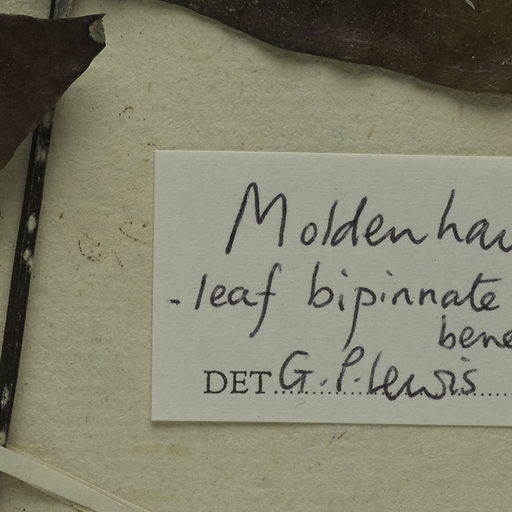 Moldenhau
- leaf bipinnate
bene
DET G.P. Lewis